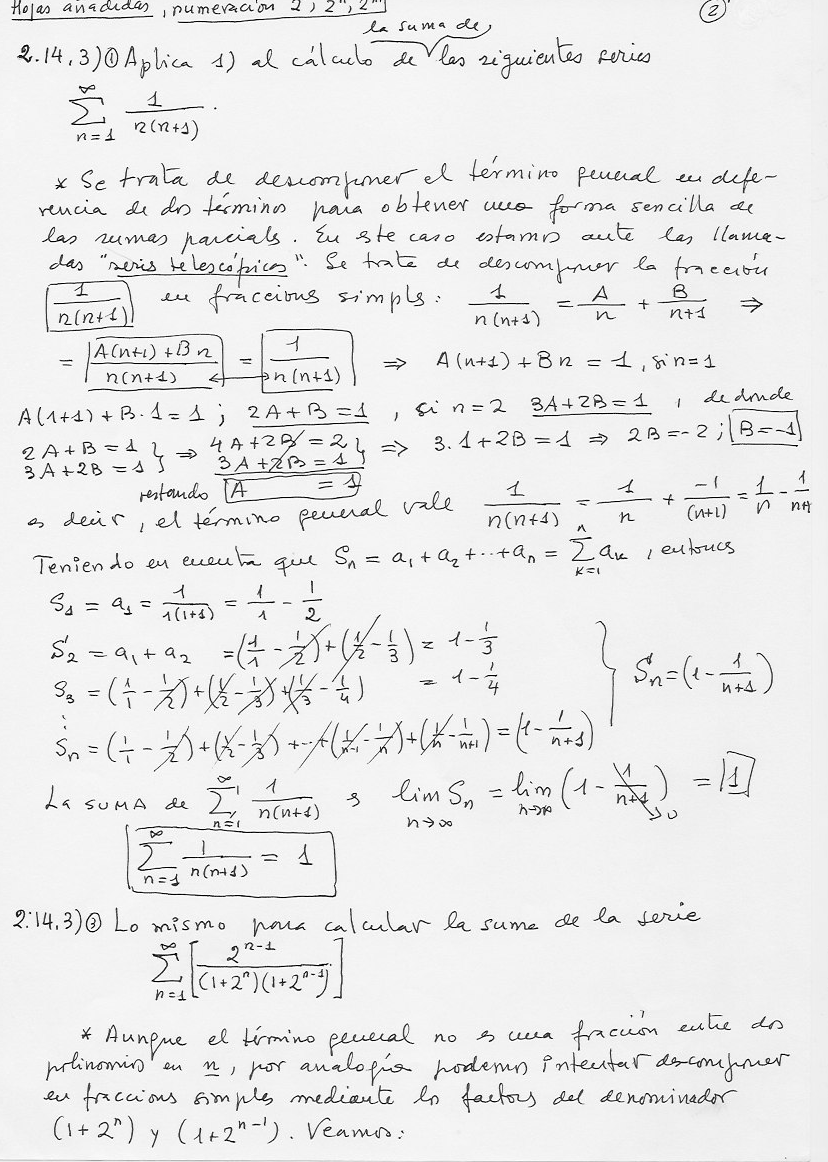 Hojas añadidas, numeración 2, 2', 2'', 2''' ②
la suma de,
2.14, 3) ① Aplica 1) al cálculo de las siguientes series
∞ Σ n=1 1/(n(n+1)).
* Se trata de descomponer el término general en dife-
rencia de dos términos para obtener una forma sencilla de
las sumas parciales. En este caso estamos ante las llama-
das "series telescópicas". Se trata de descomponer la fracción
1/(n(n+1)) en fracciones simples: 1/(n(n+1)) = A/n + B/(n+1) ⇒
= (A(n+1)+Bn)/(n(n+1)) = 1/(n(n+1)) ⇒ A(n+1)+Bn = 1, si n=1
A(1+1)+B·1=1; 2A+B=1, si n=2 3A+2B=1, de donde
2A+B=1 } ⇒ 4A+2B=2 } ⇒ 3.1+2B=1 ⇒ 2B=-2; B=-1
3A+2B=1 3A+2B=1
restando A = 1
es decir, el término general vale 1/(n(n+1)) = 1/n + -1/(n+1) = 1/n - 1/(n+1)
Teniendo en cuenta que Sn = a1+a2+··+an = n Σ k=1 ak, entonces
S1 = a1 = 1/(1(1+1)) = 1/1 - 1/2
S2 = a1+a2 = (1/1 - 1/2)+(1/2 - 1/3) = 1-1/3
S3 = (1/1 - 1/2)+(1/2 - 1/3)+(1/3 - 1/4) = 1-1/4 } Sn=(1- 1/(n+1))
⋮
Sn = (1/1 - 1/2)+(1/2 - 1/3)+··+(1/(n-1) - 1/n)+(1/n - 1/(n+1))=(1- 1/(n+1))
La SUMA de ∞ Σ n=1 1/(n(n+1)) es lim n→∞ Sn = lim n→∞ (1- 1/(n+1)) → 0 = 1
∞ Σ n=1 1/(n(n+1)) = 1
2.14, 3) ③ Lo mismo para calcular la suma de la serie
∞ Σ n=1 [2^(n-1)/((1+2^n)(1+2^(n-1)))]
* Aunque el término general no es una fracción entre dos
polinomios en n, por analogía podemos intentar descomponer
en fracciones simples mediante los factores del denominador
(1+2^n) y (1+2^(n-1)). Veamos: